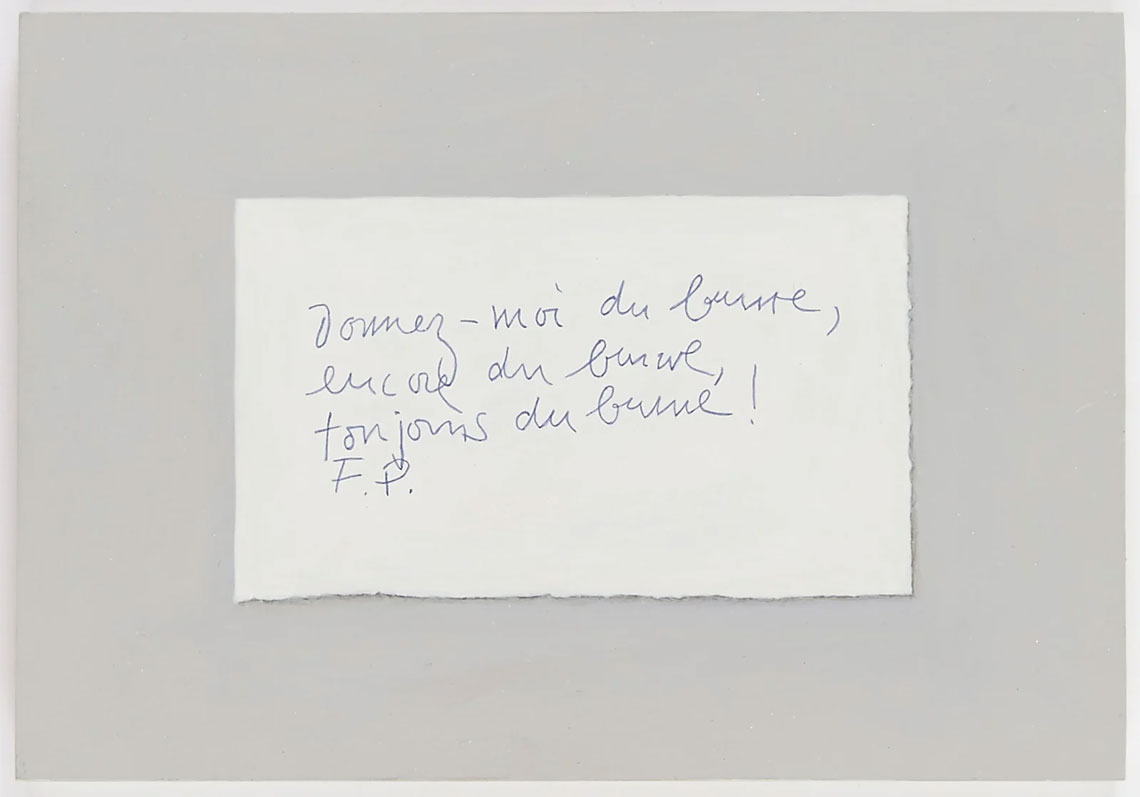 Donnez-moi du beurre,
encore du beurre,
toujours du beurre !
F.P.